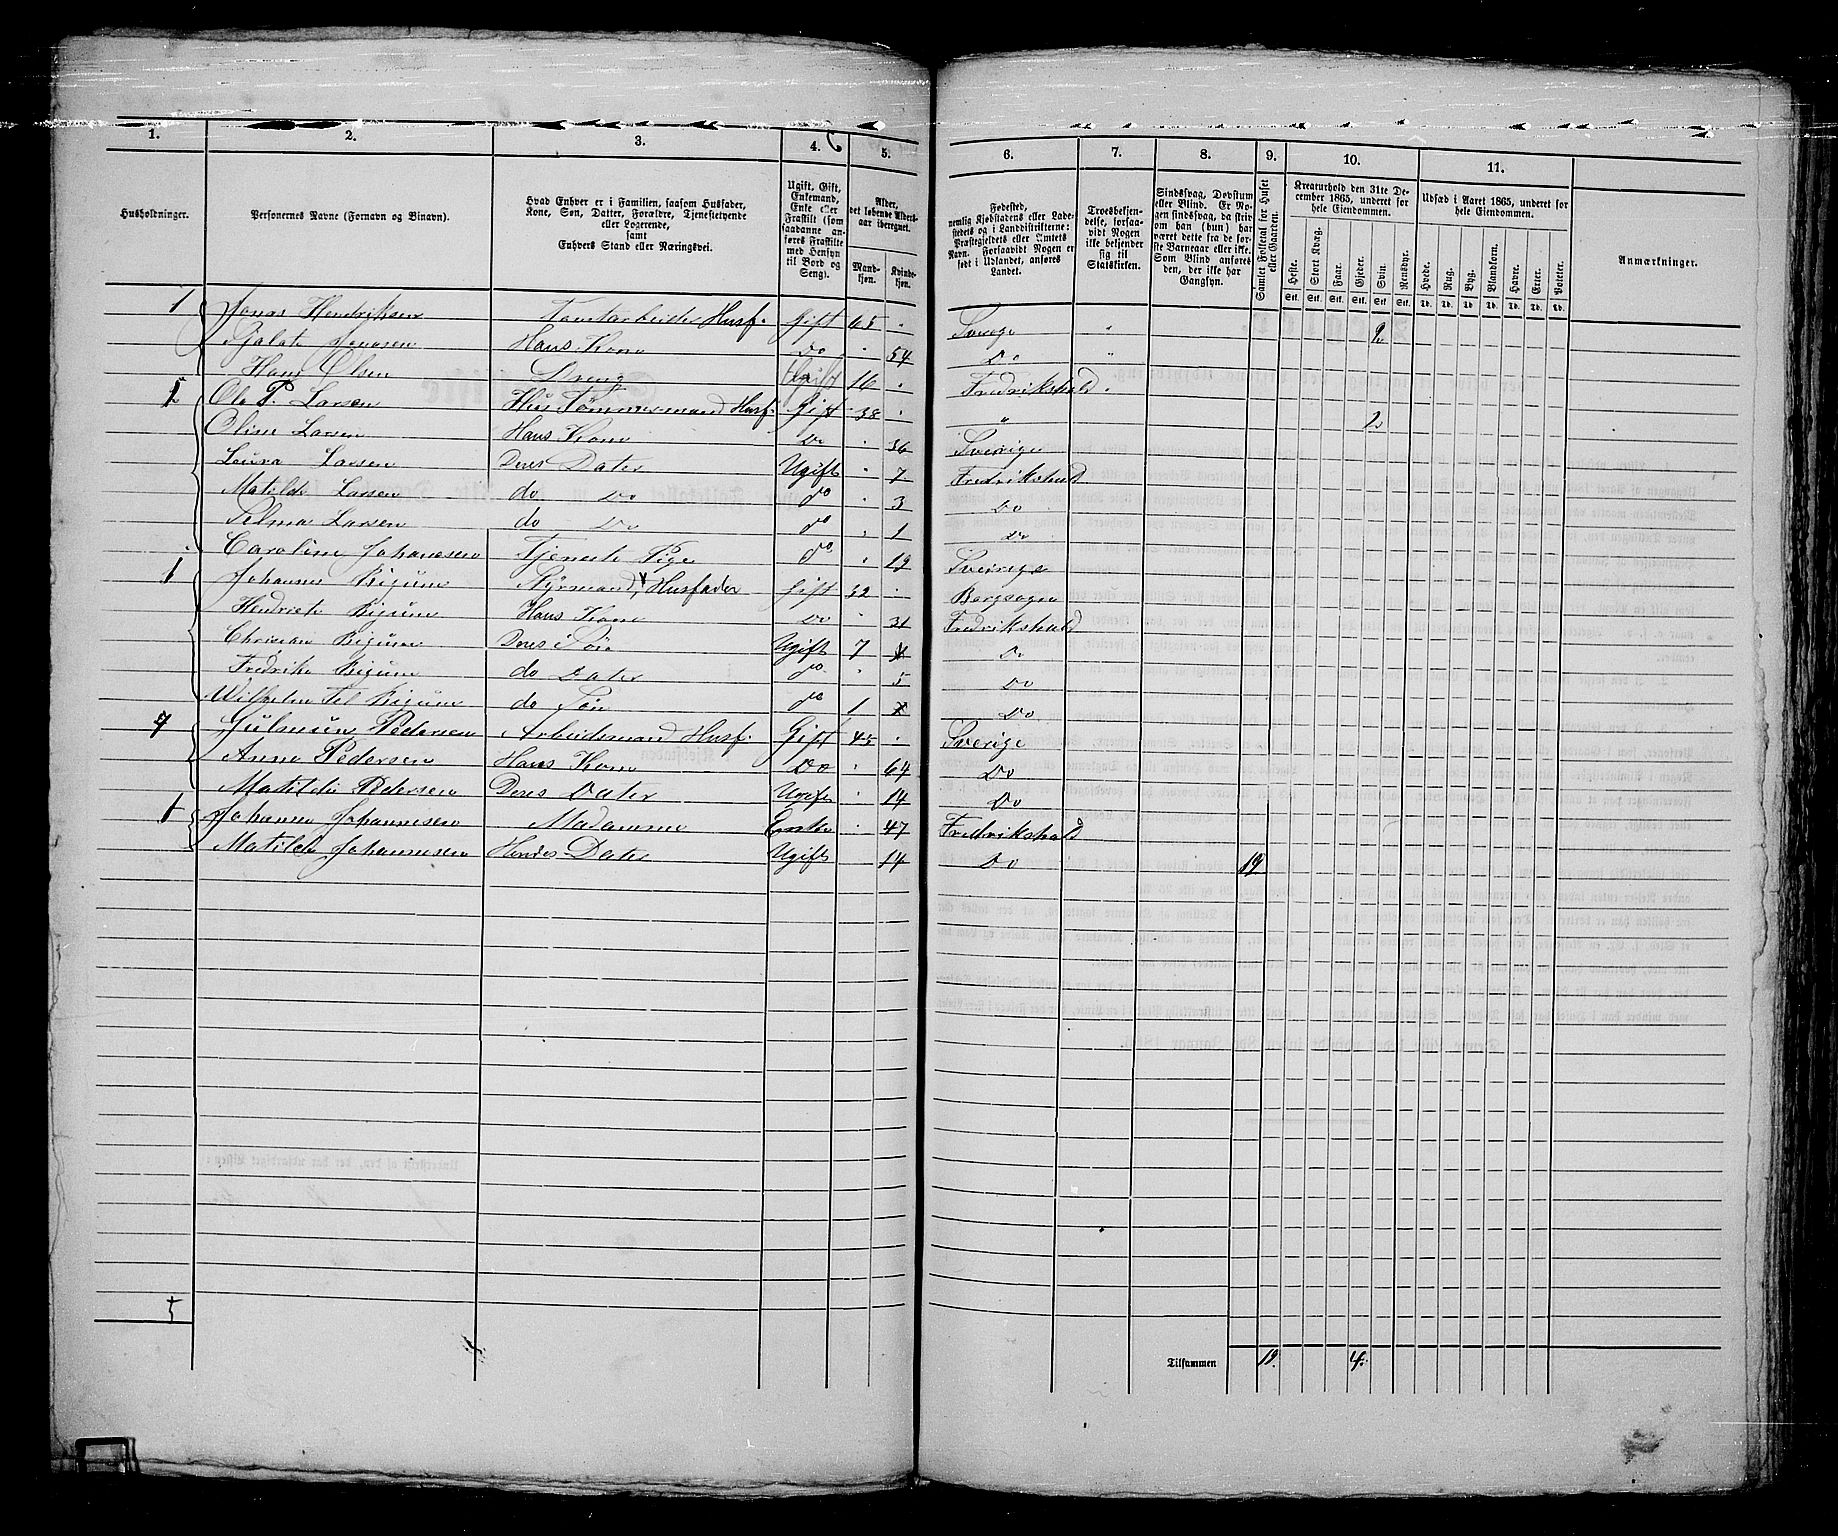 1. 2. 3. 4. 5. 6. 7. 8. 9. 10. 11.
Husholdninger.
Personernes Navne (Fornavn og Binavn).
Hvad Enhver er i Familien, saasom Husfader,
Kone, Søn, Datter, Forældre, Tjenestetyende
eller Logerende,
samt
Enhvers Stand eller Næringsvei.
Ugift, Gift,
Enkemand,
Enke eller
Fraskilt (som
saadanne an-
føres Fraskilte
med Hensyn
til Bord og
Seng).
Alder,
det løbende Alders-
aar iberegnet.
Mand-
kjøn.
Kvinde-
kjøn.
Fødested,
nemlig Kjøbstadens eller Lade-
stedets og i Landdistrikterne:
Præstegjeldets eller Amtets
Navn. Forsaavidt Nogen er
født i Udlandet, anføres
Landet.
Troesbekjen-
delse, forsaa-
vidt Nogen
ikke bekjender
sig til
Statskirken.
Sindssvag, Døvstum
eller Blind. Er No-
gen sindssvag, da skriv
om han (hun) har
været dette fra de før-
ste Barneaar eller ikke.
Som Blind anføres
den, der ikke har
Gangsyn.
Samlet Folketal for Huset
eller Gaarden.
Kreaturhold den 31te De-
cember 1865, underet for
hele Eiendommen.
Heste. Stort Kvæg. Faar. Gjeder. Svin. Rensdyr.
Stk. Stk. Stk. Stk. Stk. Stk.
Udsæd i Aaret 1865, underet for
hele Eiendommen.
Hvede. Rug. Byg. Blandkorn. Havre. Erter. Poteter.
Td. Td. Td. Td. Td. Td. Td.
Anmærkninger.
1 Jonas Hendriksen Husf. Gift 65 Sverige " 2
Jonasen Hans Kone Do 54 Do "
Hans Olsen Dreng Ugift 16 Fredrikshald
1 Ole P. Larsen Tømmermand Husf. Gift 38 " 2
Oline Larsen Hans Kone Do 36 Sverige
Laura Larsen Deres Dater Ugift 7 Fredrikshald
Matilde Larsen do Do do 3 Do
Selma Larsen do Do do 1 Do
Caroline Johanesen Tjeneste Pige do 19 Sverige
1 Johannes Bigum Styrmand, Husfader Gift 32
Hendriete Bigum Hans Kone Do 31 Fredrikshald
Christian Bigum Deres Søn Ugift 7 Do
Fredrike Bigum do Dater do 5 Do
Wilhelm Bigum do Søn do 1 Do
1 Pedersen Arbeidsmand Husf. Gift 45 Sverige
Anne Pedersen Hans Kone Do 64 Do
Matilde Pedersen Deres Dater Ugift 14 Do
1 Johanne Johannesen Madamme Enke 47 Fredrikshald
Matilde Johannesen Hendes Dater Ugift 14 Do 19
5
Tilsammen 19. 4.